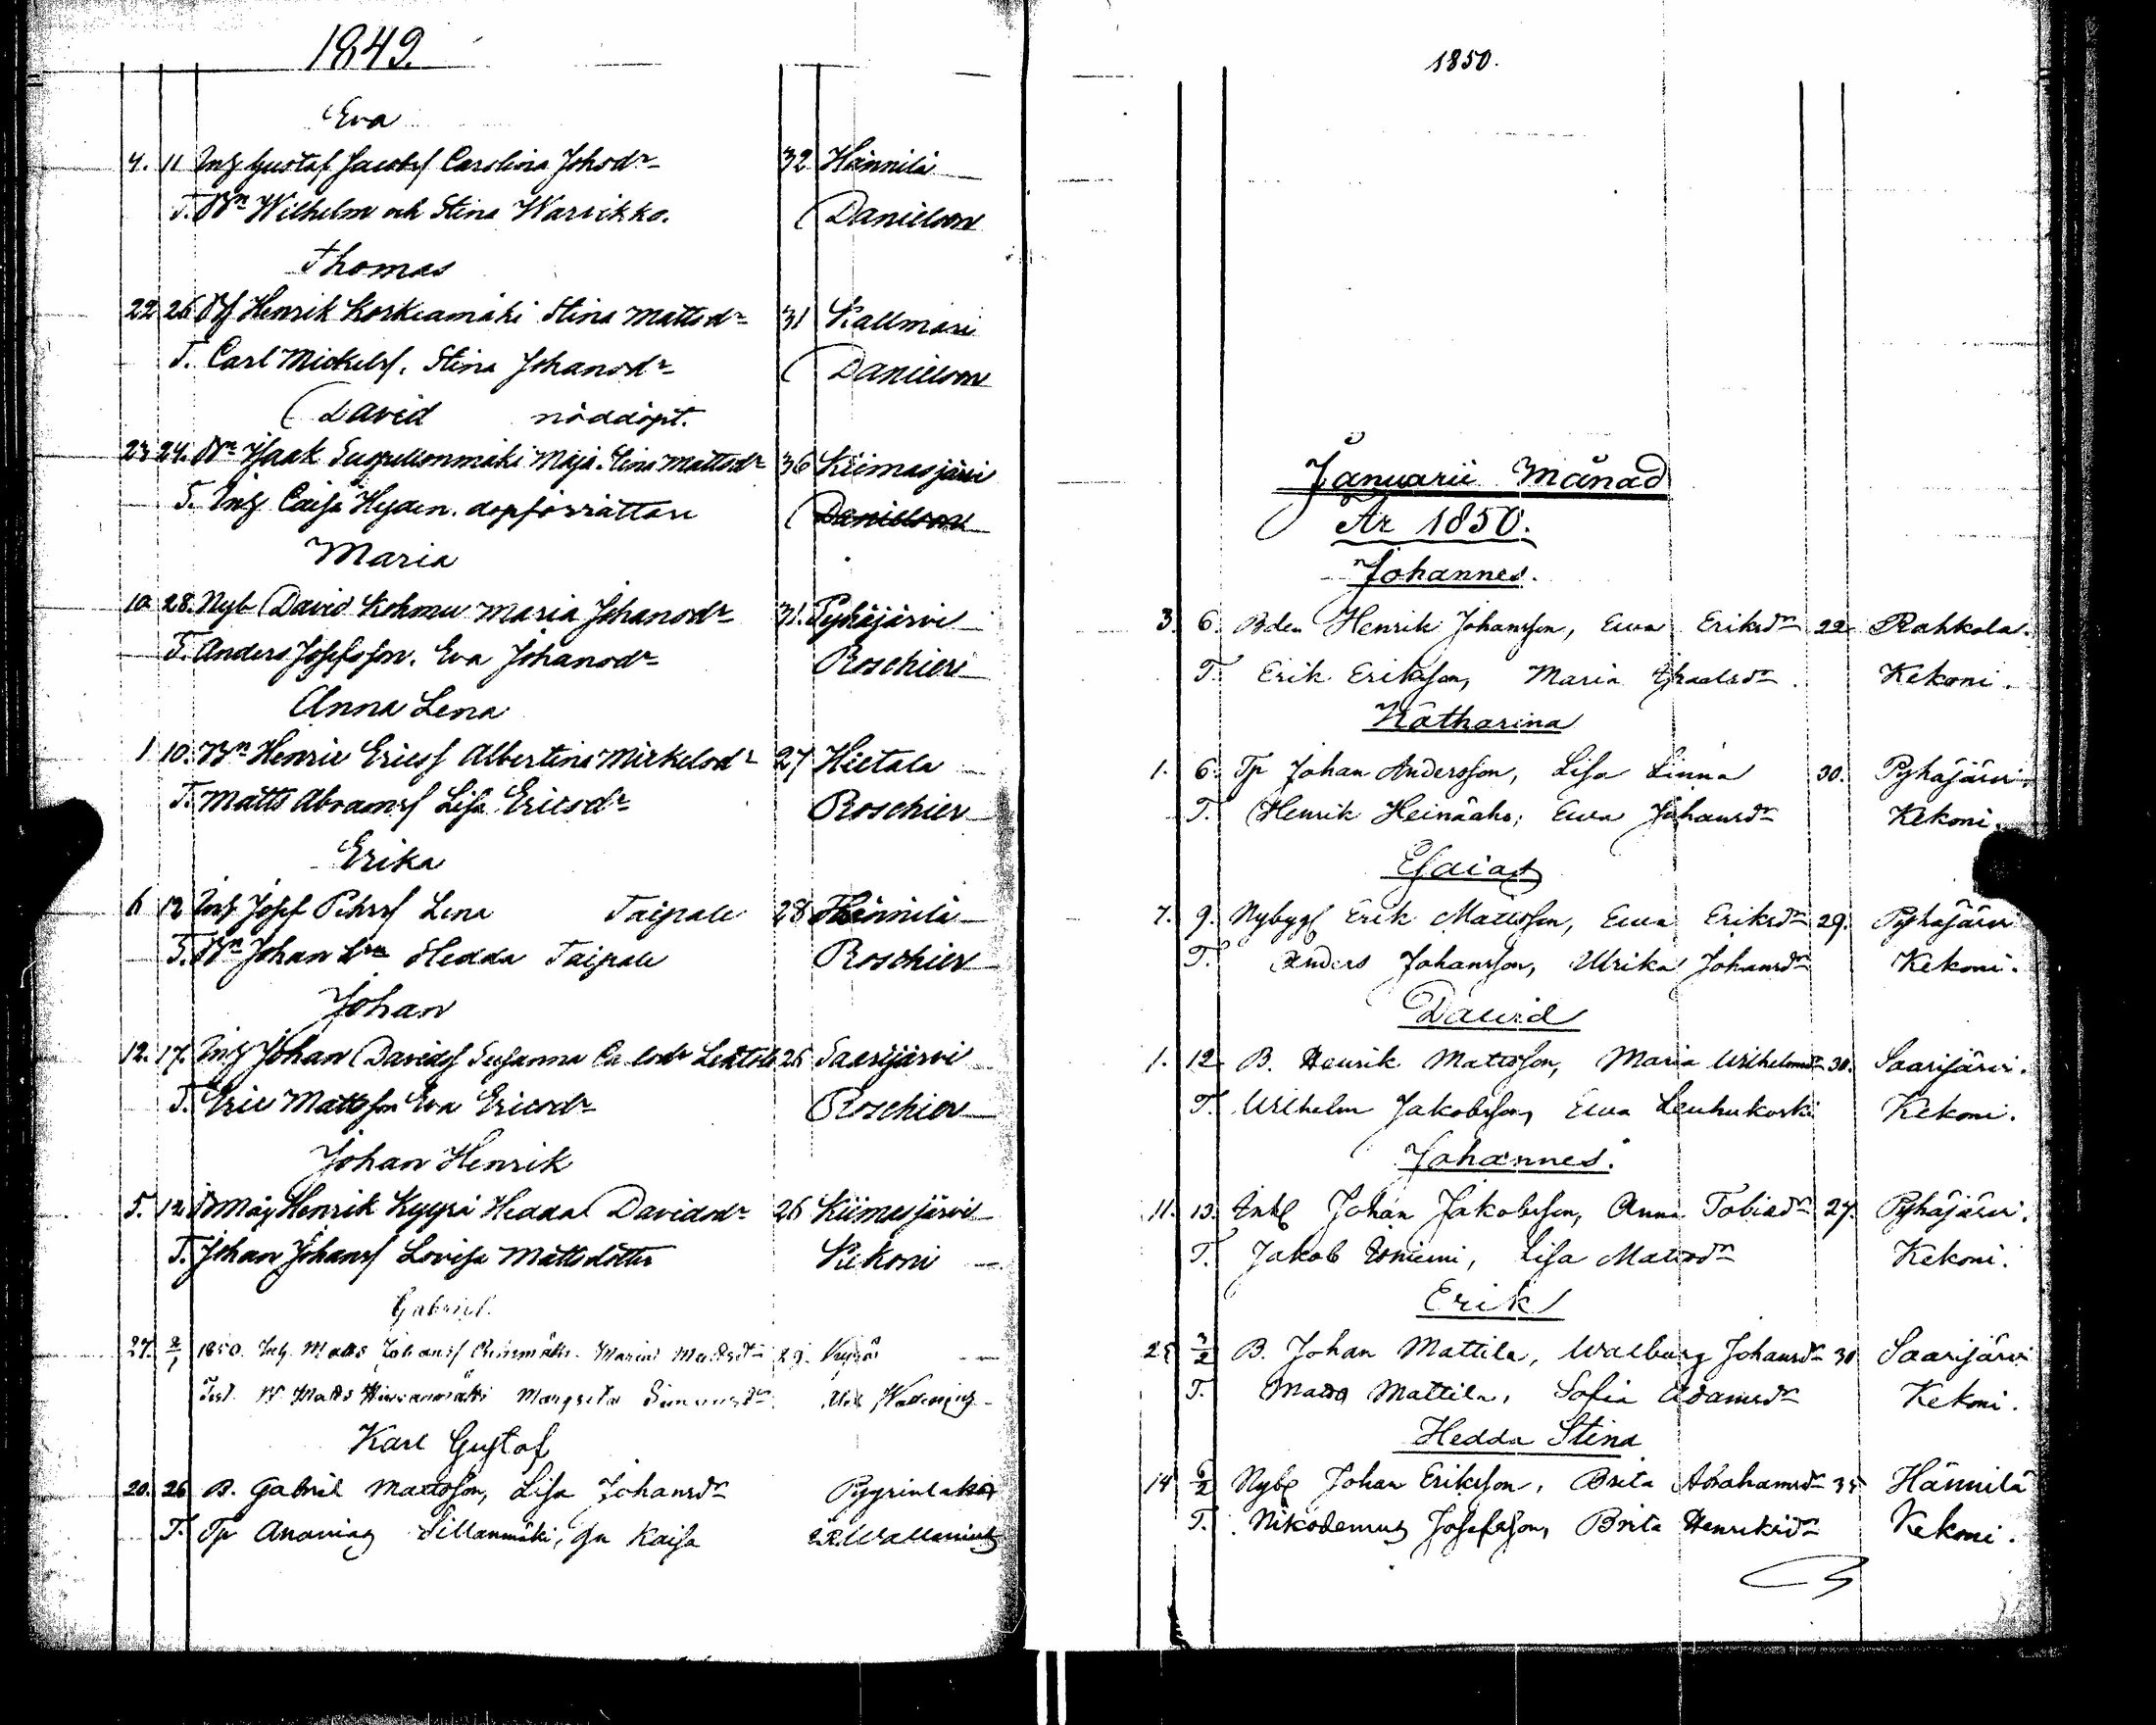 1849.
Eva
4. 11 Inh Gustaf Jacobss Carolina Johsdr 32 Hännilä
T. Bn Wilhelm och Stina Warvikko. Danielson
Thomas
22 26 Henrik Korkiamäki Stina Mattsdr 31 Kallmari
T. Carl Mickelss. Stina Johansdr Danielson
David nöddöpt.
23 24. Bn Isaak Maja Stina Mattsdr 36 Kiimasjärvi
T. Inh Caisa Hyden. dopförrättare Danielson
Maria
10 28. Nyb David Kohmu Maria Johansdr 31. Pyhäjärvi
T. Anders Josefsson. Eva Johansdr Roschier
Anna Lena
1 10. Bn Henric Ericss Albertina Mickelsdr 27 Hietala
T. Matts Abramss Lisa Ericsdr Roschier
Erika
6 12 Inh Josef Pehrss Lena Taipale 28 Hännilä
T. Bn Johan Hedda Taipale Roschier
Johan
12. 17. Inh Johan Davidss Susanna 26 Saarijärvi
T. Eric Mattsson Eva Ericsdr Roschier
Johan Henrik
5. 12 Bmåg Henrik Kyyrä Hedda Davidsdr 26 Kiimasjärvi
T. Johan Johanss Lovisa Mattsdotter Kekoni
Gabriel.
27. 2/1 1850. Inh. Matts Johanss Maria Mattsdr 29.
Test. Matts Margreta Simonsdr Wallenius
Karl Gustaf
20. 26 B. Gabriel Mattsson, Lisa Johansdr Pyyrinlaks
T. Tp Ananias Sillanmäki, Hn Kaisa Wallenius
1850.
Januarii Månad
År 1850.
Johannes.
3. 6. Bden Henrik Johansson, Ewa Eriksdr 22 Rahkola.
T. Erik Eriksson, Maria Israelsdr. Kekoni.
Katharina
1. 6. Tp Johan Andersson, Lisa Linna 30. Pyhäjärvi.
T. Henrik Heinäaho, Ewa Johansdr Kekoni.
Esaias
7. 9. Nybygg Erik Mattsson, Ewa Eriksdr 29. Pyhäjärvi
T. Anders Johansson, Ulrika Johansdr Kekoni.
Dawid
1. 12 B. Henrik Mattsson, Maria Wilhelmsdr 30. Saarijärvi.
T. Wilhelm Jakobsson, Ewa Leuhukoski Kekoni.
Johannes.
11. 13. Inh Johan Jakobsson, Anna Tobiasdr 27. Pyhäjärvi.
T. Jakob Lisa Mattsdr Kekoni.
Erik
25 3/2 B. Johan Mattila, Walborg Johansdr 30 Saarijärvi
T. Matts Mattila, Sofia Adamsdr Kekoni.
Hedda Stina
14 6/2 Nyb Johan Eriksson, Brita Abrahamsdr 35 Hännilä
T. Nikodemus Josefsson, Brita Henriksdr Kekoni.